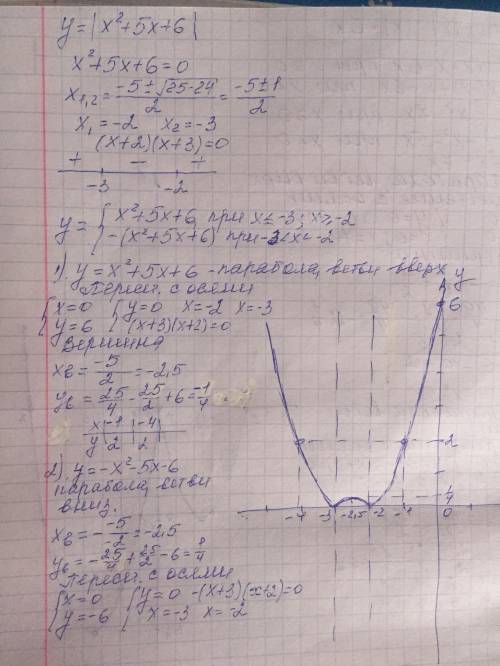 y=|x²+5x+6|
x²+5x+6=0
x₁,₂=(-5±√(25-24))/2=(-5±1)/2
x₁=-2 x₂=-3
(x+2)(x+3)=0
+ - +
-3 -2
y={x²+5x+6, при x≤-3; x≥-2
-(x²+5x+6) при -3<x<-2
1) y=x²+5x+6 - парабола, ветви вверх
Перес. с осями
{x=0 {y=0 x=-2 x=-3
{y=6 {(x+3)(x+2)=0
Вершина
xв=-5/2=-2,5
yв=25/4-25/2+6=-1/4
x|-1|-4|
y|2|2|
2) y=-x²-5x-6
парабола, ветви
вниз.
xв=--5/-2=-2,5
yв=-25/4+25/2-6=1/4
Перес. с осями
{x=0 {y=0 -(x+3)(x+2)=0
{y=-6 {x=-3 x=-2
y
6
2
1/4
-4 -3 -2,5 -2 -1 0
x